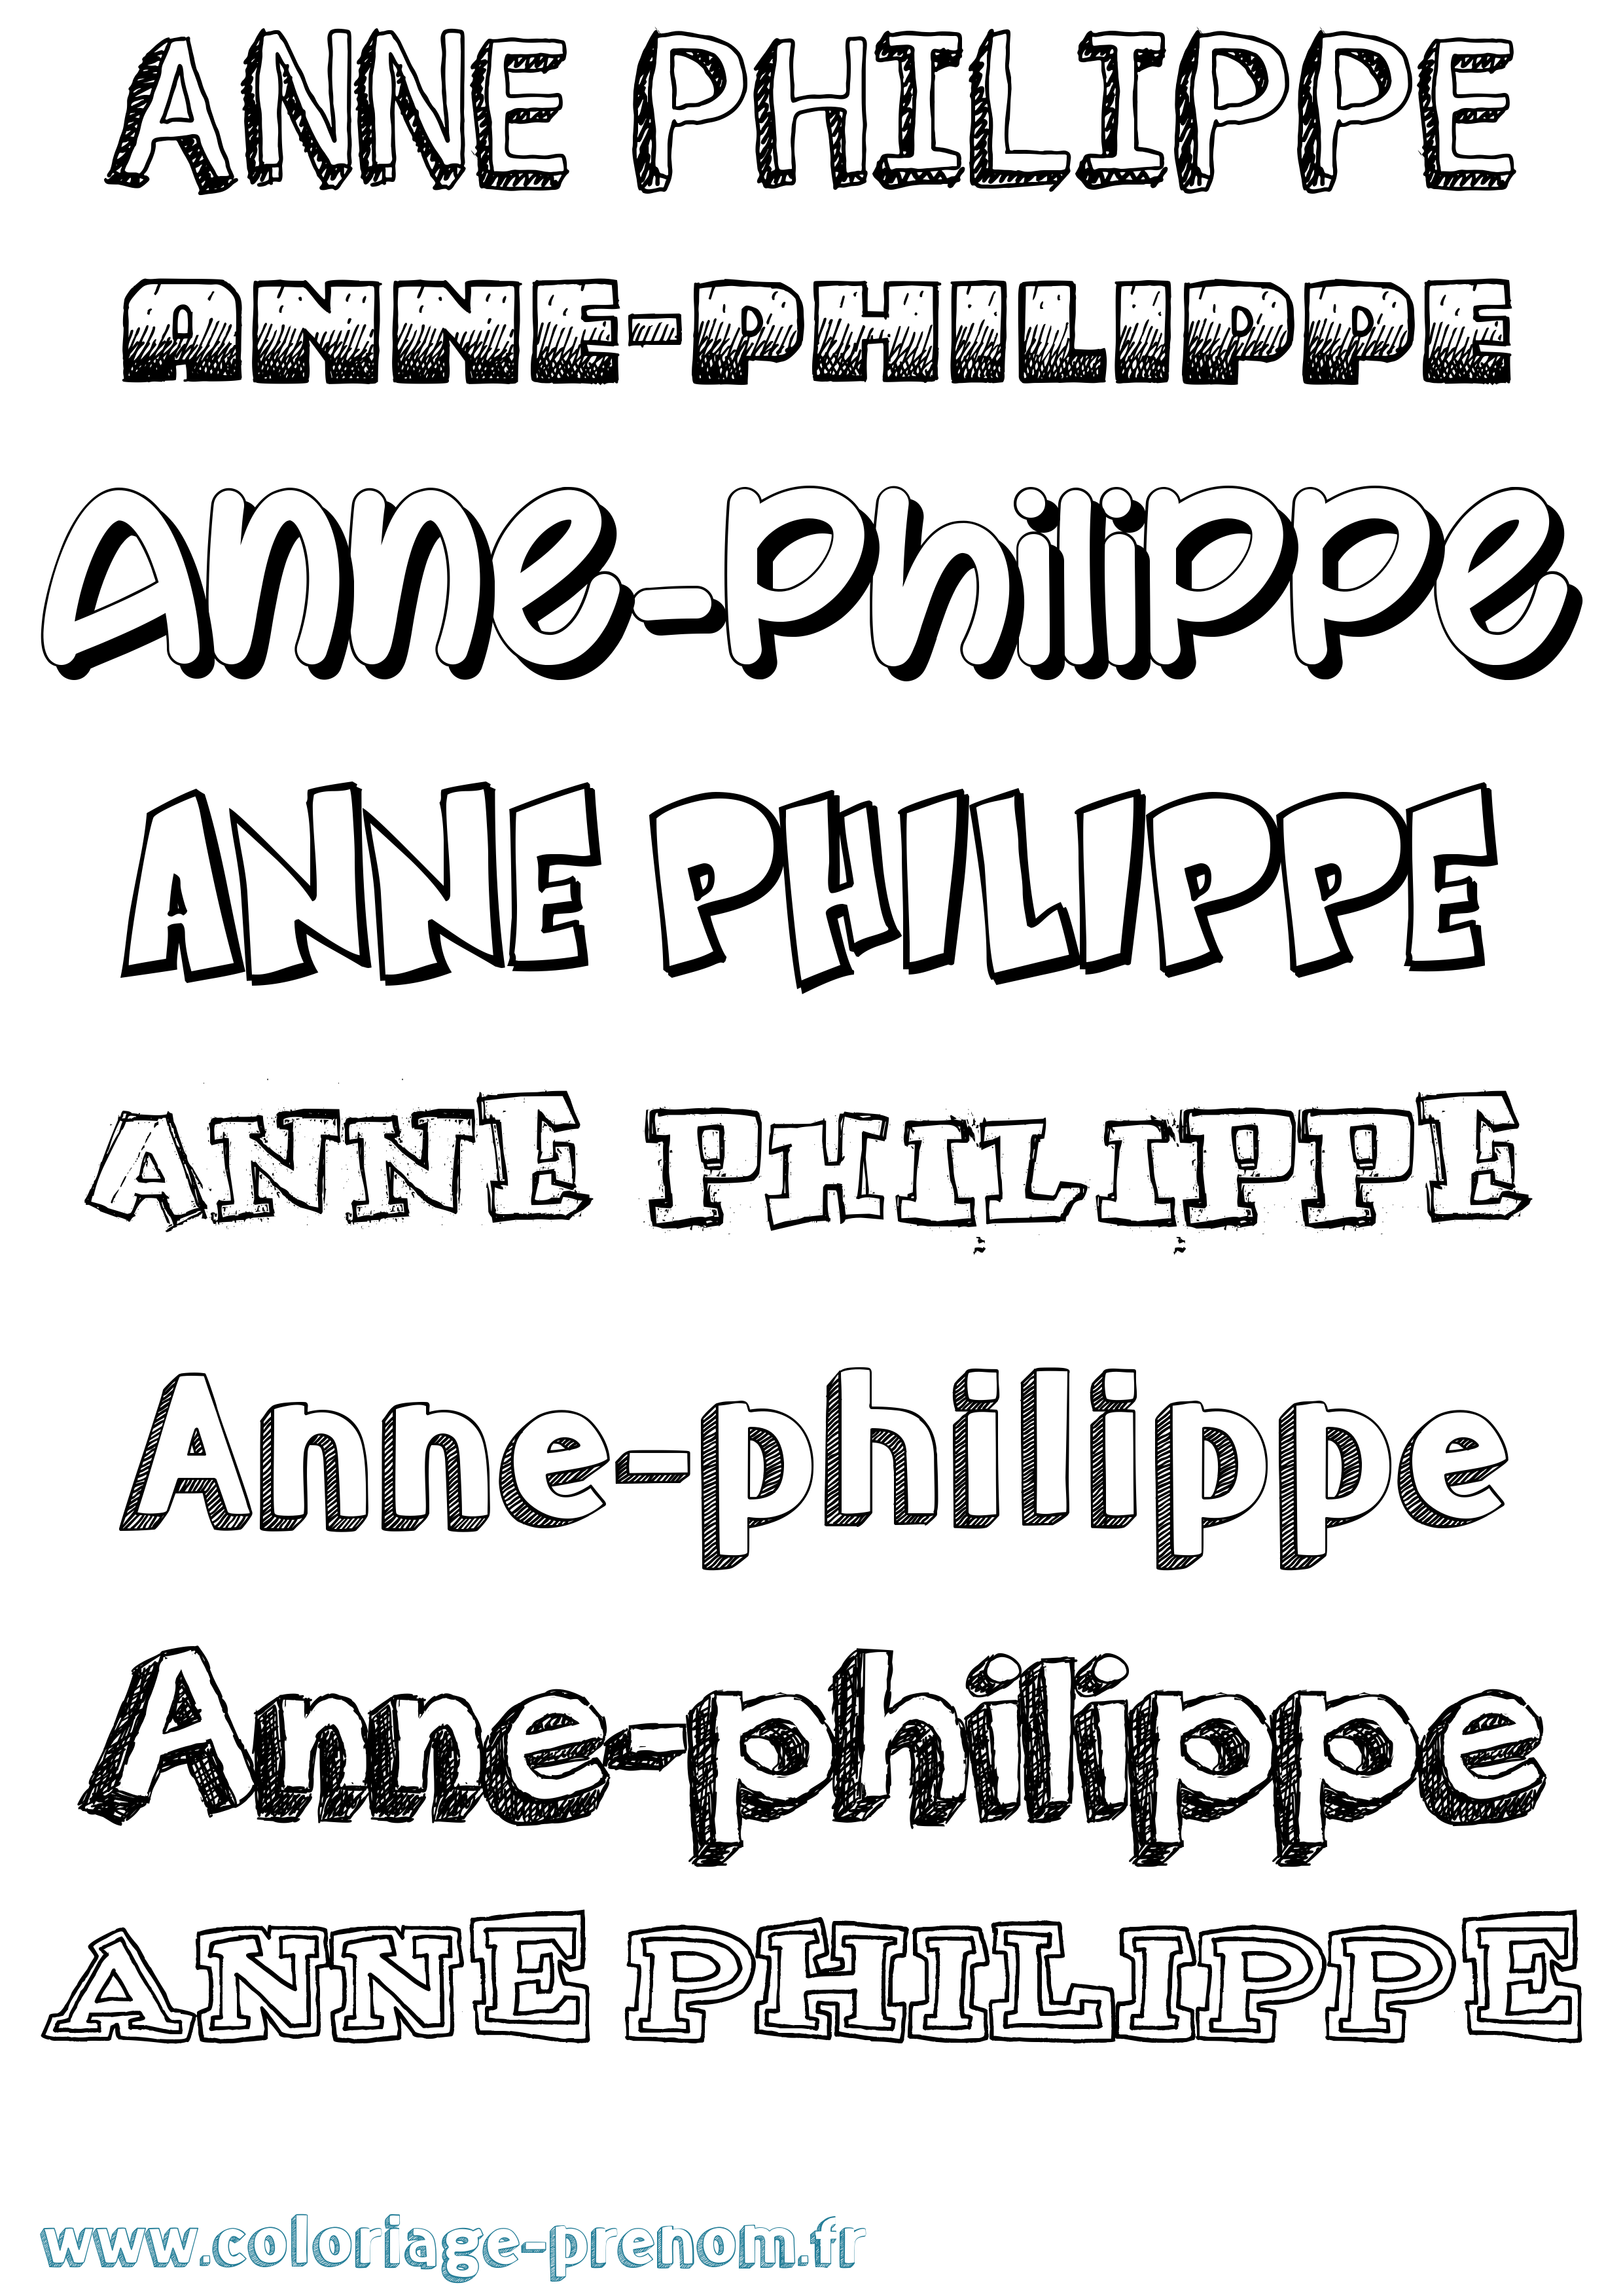 ANNE PHILIPPE
ANNE-PHILIPPE
Anne-philippe
ANNE PHILIPPE
ANNE PHILIPPE
Anne-philippe
Anne-philippe
ANNE PHILIPPE
www.coloriage-prenom.fr